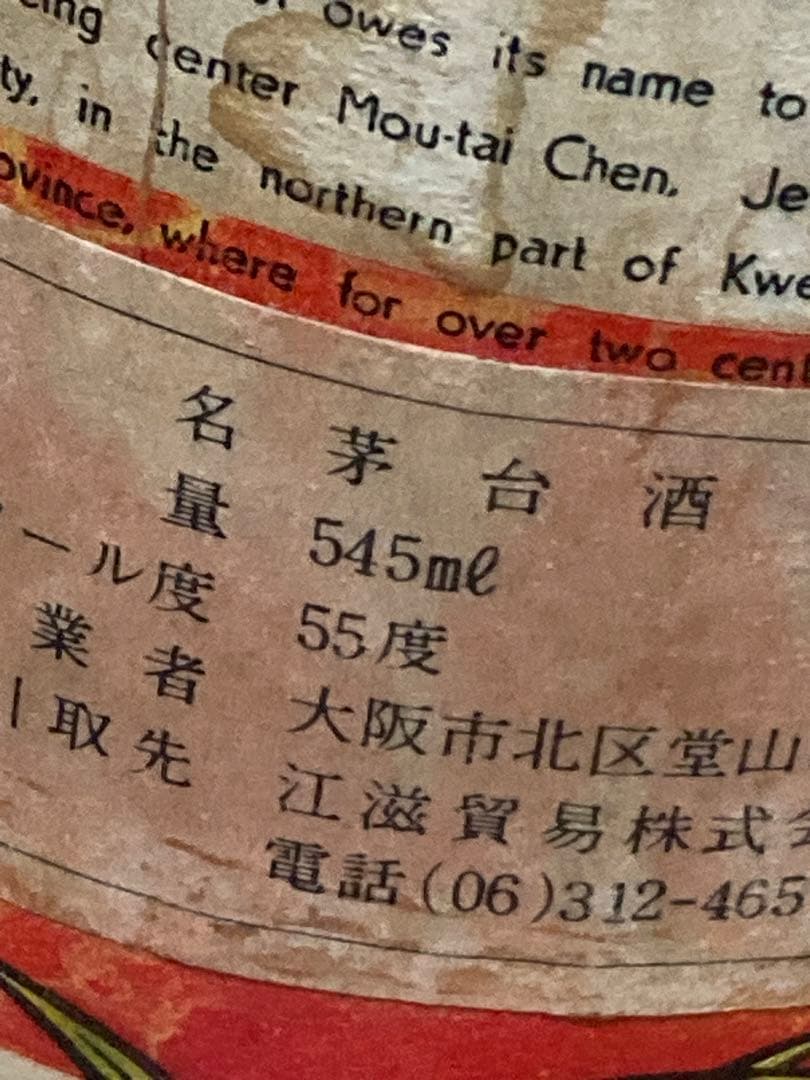 owes its name to
center Mou-tai Chen, Je
ty, in the northern part of Kwe
ovince, where for over two cent
名 茅台酒
量 545mℓ
ール度 55度
業者 大阪市北区堂山
取先 江滋貿易株式会
電話(06)312-465